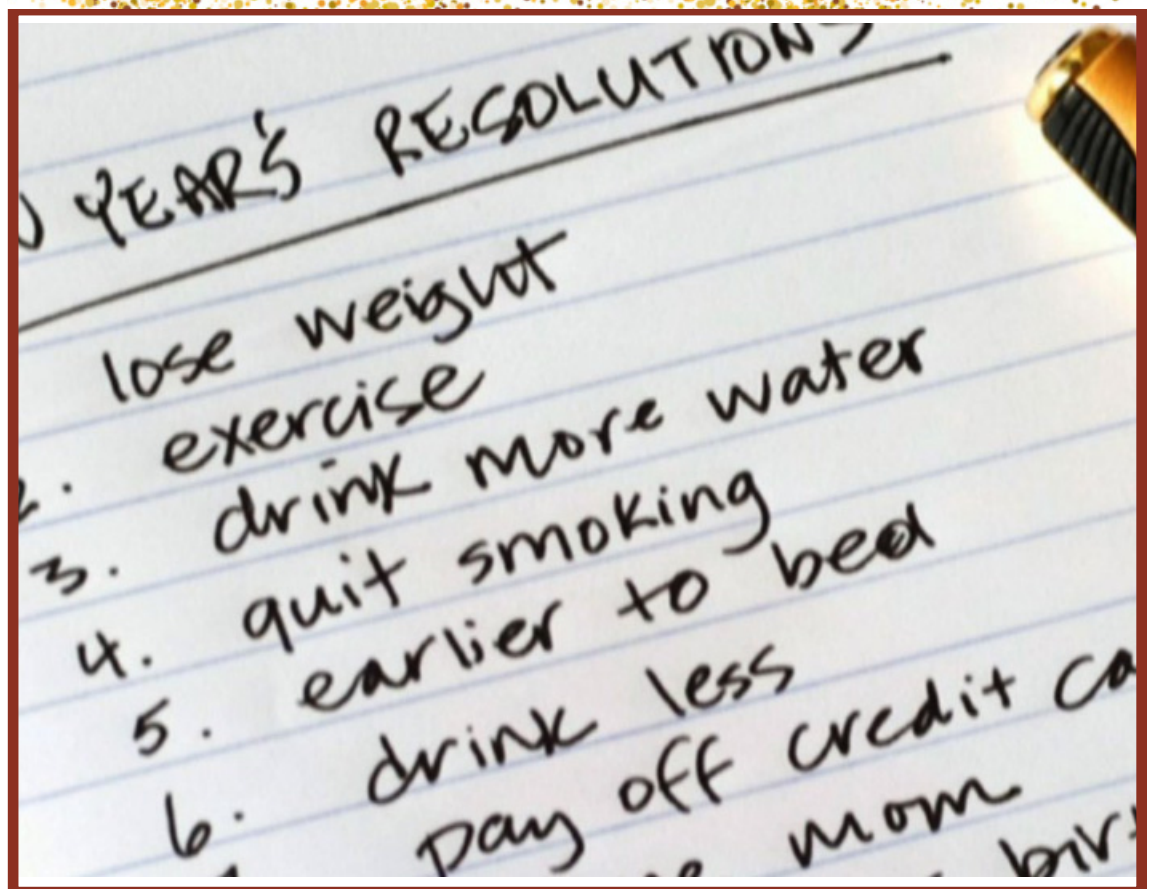 YEAR'S RESOLUTIONS
lose weight
2. exercise
3. drink more water
4. quit smoking
5. earlier to bed
6. drink less
pay off credit ca
mom
bir